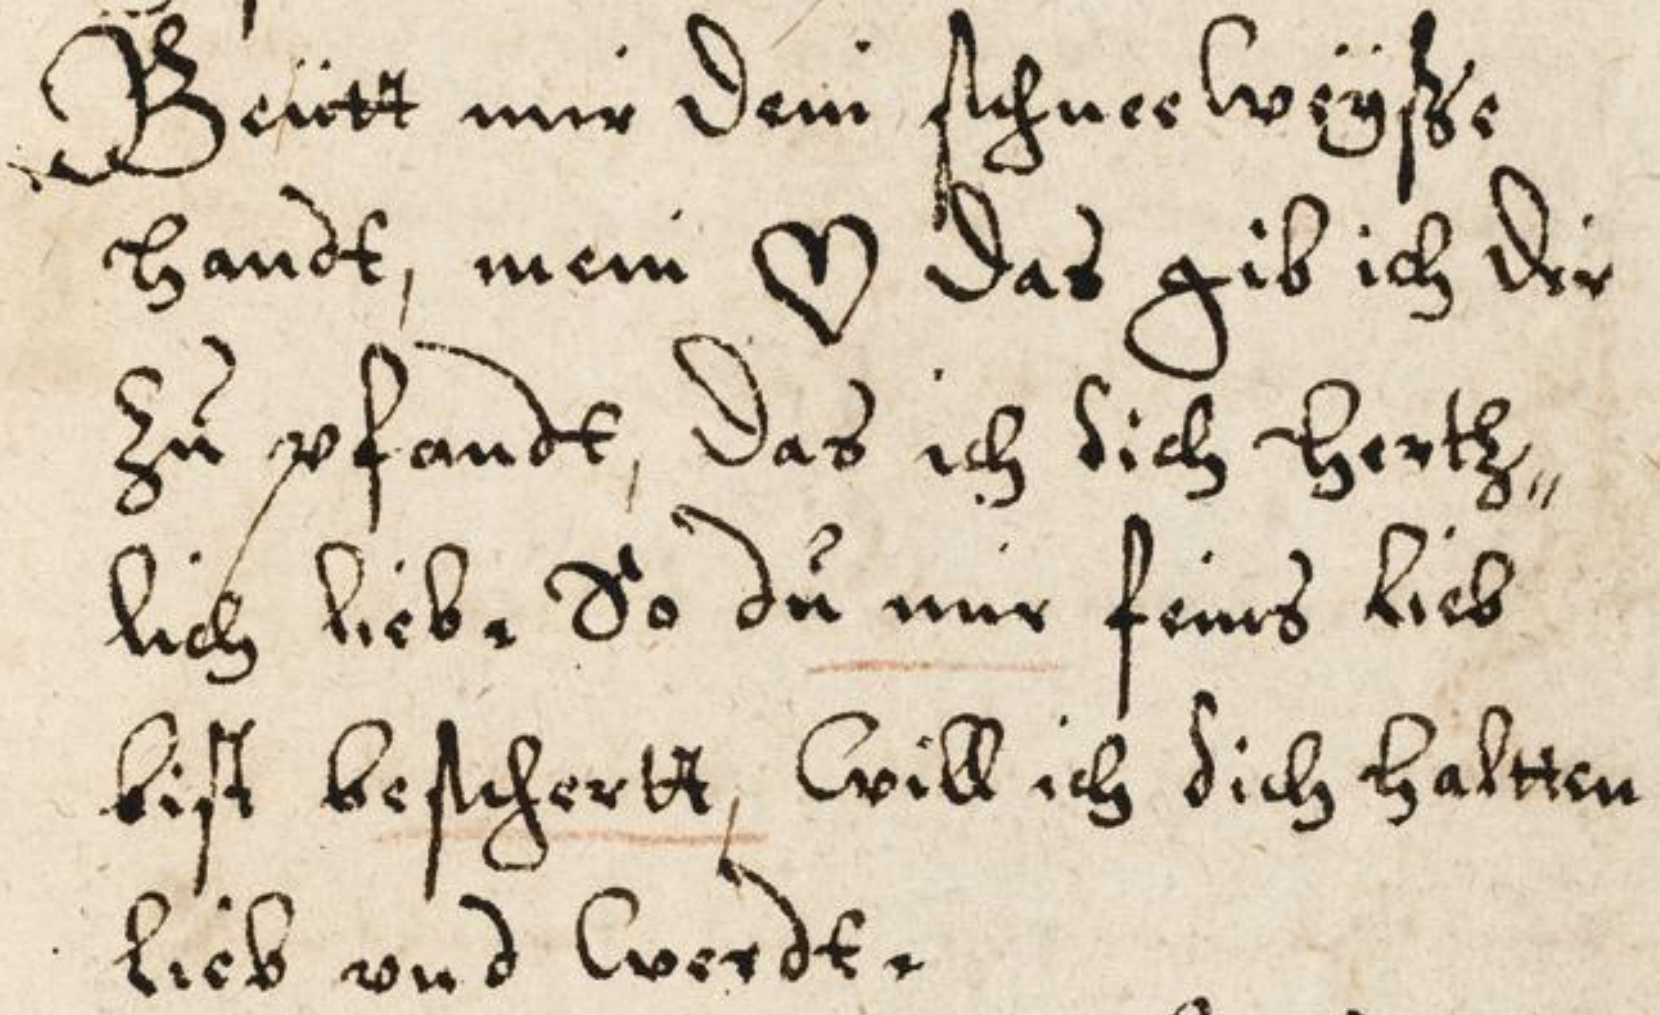 Beütt mir dein schneeweÿsse
handt, mein ♡ das gib ich dir
zu pfandt, das ich dich hertz„
lich lieb. So du mir feins lieb
bist beschertt, will ich dich haltten
lieb vnd werdt.